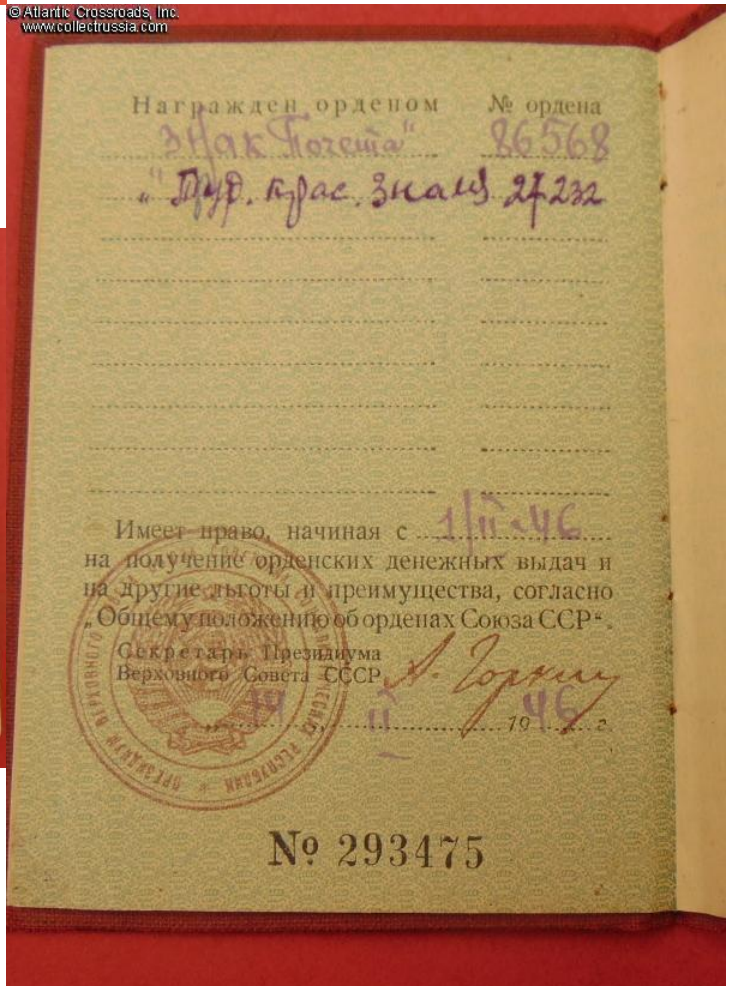 © Atlantic Crossroads, Inc.
www.collectrussia.com
Награжден орденом № ордена
Знак Почета" 86568
" Труд. крас. Знамя 27232
Имеет право, начиная с 1/II-46
на получение орденских денежных выдач и
на другие льготы и преимущества, согласно
„Общему положению об орденах Союза ССР".
Секретарь Президиума
Верховного Совета СССР А. Горкин
„14 „ II 1946 г.
ПРЕЗИДИУМ ВЕРХОВНОГО
РЕСПУБЛИК
№ 293475